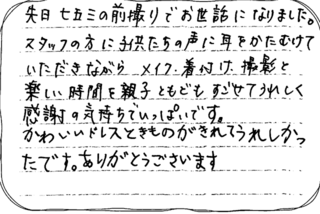 先日七五三の前撮りでお世話になりました。
スタッフの方に子供たちの声に耳をかたむけて
いただきながら メイク・着付け、撮影と
楽しい時間を親子ともども すごせてうれしく
感謝の気持ちでいっぱいです。
かわいいドレスときものがきれてうれしかっ
たです。ありがとうございます